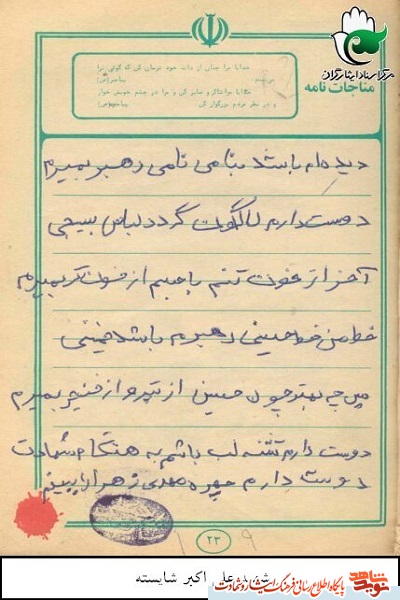 مرکز اسناد ایثارگران
مناجات نامه
خدایا مرا چنان از ذات خود ترسان کن که گوئی ترا
می بینم پیامبر(ص)
خدایا مرا شاکر و صابر کن و مرا در چشم خویش خوار
و در نظر مردم بزرگوار کن پیامبر(ص)
دیده ام باشد بنامی نامی رهبر بمیرم
دوست دارم لاله گون گردد لباس بسیجی
آخر از خون تنم با جبم از خون بمیرم
خط من خط حسینی رهبرم باشد خمینی
من چه بهتر چون حسین از تیر و از خنجر بمیرم
دوست دارم تشنه لب باشم به هنگام شهادت
دوست دارم چهره مهدی زهرا را ببینم
۲۳
شهید علی اکبر شایسته
نوید شاهد
پایگاه اطلاع رسانی فرهنگ ایثار و شهادت
www.navideshahed.com